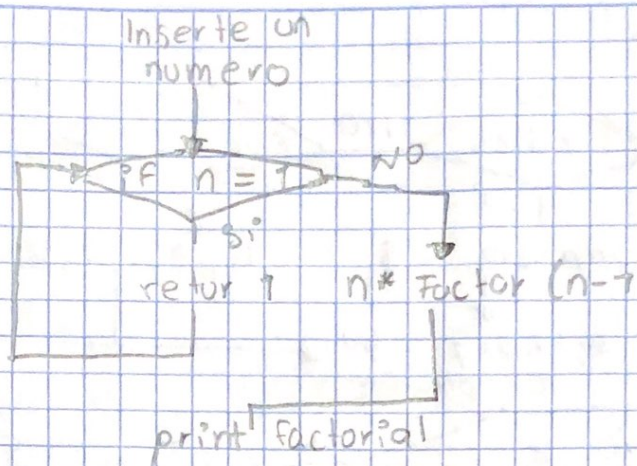 Inserte un
numero
if n = 1
NO
si
retur 1
n* Factor (n-1
print factorial